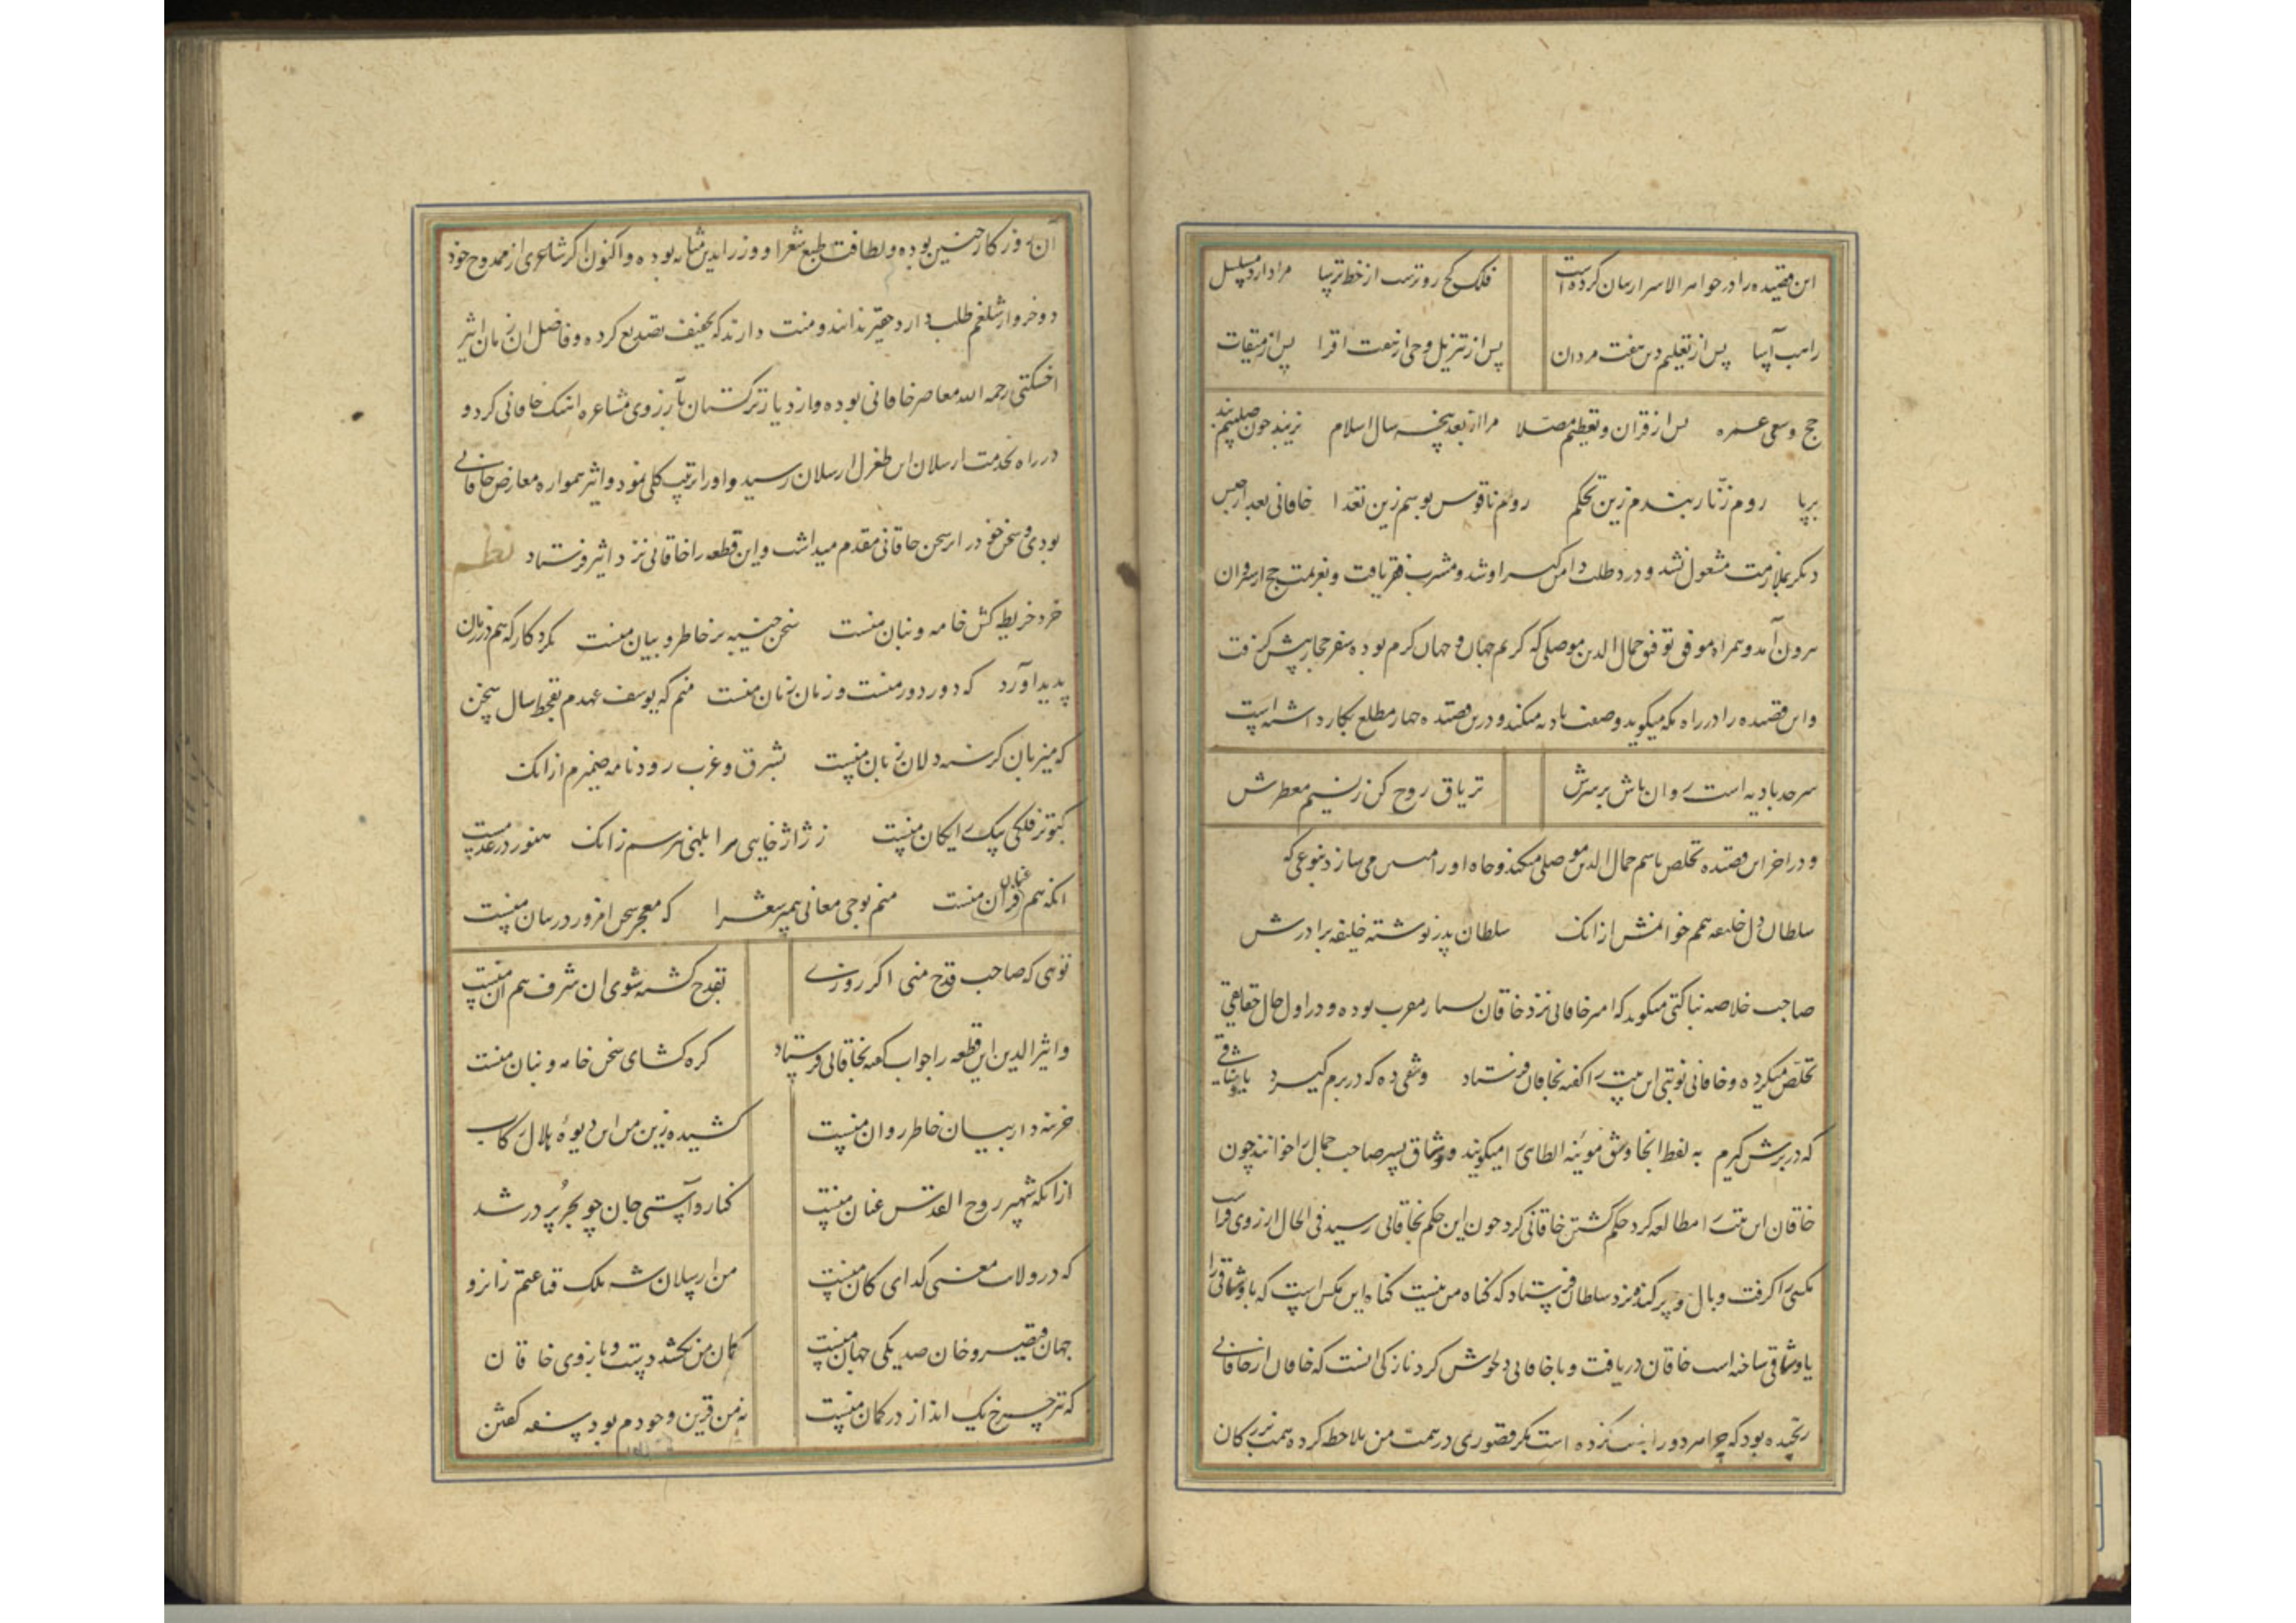 این قصیده را در جواهر الاسرار بیان کرده است فلک کج روترست از خط ترسا مرا دارد مسلسل
راهب آسا پس از تعلیم دین هفت مردان پس از تنزیل وحی از هفت اقرا پس از میقات
حج و سعی عمره پس از قران و تعظیم مصلا مرا از بعد پنجه سال اسلام نزیبد چون صلیبم بند
برپا روم زنار بندم زین تحکم روم ناقوس بوسم زین تعدا خاقانی بعد از حبس
دیگر بملازمت مشغول نشد و درد طلب دامن گیر او شد و مشرب فقر یافت و بعزیمت حج از شروان
بیرون آمد و همراه موفق توفیق جمال الدین موصلی که کریم جهان و جهان کرم بوده سفر حجاز پیش گرفت
و این قصیده را در راه مکه میگوید وصفت بادیه میکند و درین قصیده چهار مطلع بکار داشته است
سرحد بادیه است روان باش بر سرش تریاق روح کن ز نسیم معطرش
و در اخر این قصیده تخلص باسم جمال الدین موصلی میکند و جاه او را می سازد بنوعی که
سلطان دل خلیفه همم خوانمش از انک سلطان پدر نوشته خلیفه برادرش
صاحب خلاصه بناکتی میگوید که امیر خاقانی نزد خاقان بسیار مقرب بوده و در اول حال حقایقی
تخلص میکرده و خاقانی نوبتی این بیت را گفته بخاقان فرستاد وشقی ده که در برم گیرد یا وشاقی
که در برش گیرم به لفظ انجا وشق موئینه الطای را میگویند و وشاق پسر صاحب جمال را خوانند چون
خاقان این بیت را مطالعه کرد حکم کشتن خاقانی کرد چون این حکم بخاقانی رسید فی الحال از روی فراست
مکسی را گرفت و بال و پر کند و نزد سلطان فرستاد که گناه من نیست گناه این مکس است که با وشاقی را
یا وشاقی ساخته است خاقان دریافت و با خاقانی دلخوش کرد نازکی انست که خاقان از خاقانی
رنجیده بود که چرا هر دو را نکرده است مکر قصوری در همت من ملاحظه کرده همت بزرگان
آن روزگار چنین بوده و لطافت طبع شعرا و وزرا بدین مثابه بوده و اکنون اگر شاعری از ممدوح خود
دو خروار شلغم طلب دارد حقیر ندانند و منت دارند که تخفیف تصدیع کرده و فاضل ان زمان اثیر
اخسکتی رحمه الله معاصر خاقانی بوده و از دیار ترکستان بآرزوی مشاعره اهنک خاقانی کرد و
در راه بخدمت ارسلان ابن طغرل ارسلان رسید و او را تربیت کلی نمود و اثیر همواره معارض خاقانی
بودی و سخن خود را از سخن خاقانی مقدم میداشت و این قطعه را خاقانی نزد اثیر فرستاد نظم
خرد خریطه کش خامه و بنان منست سخن جنیبه بر خاطر و بیان منست بکردکار که هم در زمان
پدید آورد که دور دور منست و زمان زمان منست منم که یوسف عهدم بقحط سال سخن
که میزبان گرسنه دلان زبان منست بشرق و غرب رود نامه ضمیرم از انک
کبوتر فلکی پیک رایکان منست ز ژاژخایی هر ابلهی نترسم زانک هنوز در عدمست
انکه هم قران منست منم بوحی معانی پیمبر شعرا که معجز سخن امروز در بیان منست
توئی که صاحب قدح منی اگر روزی بقدح کشته شوی ان شرف هم ان منست
و اثیر الدین این قطعه را جواب گفته بخاقانی فرستاد گره گشای سخن خامه و بنان منست
خزینه دار بیان خاطر روان منست کشیده زین من این دیوهٔ هلال رکاب
از انکه شهپر روح القدس عنان منست کنار و آستی جان چو بحر پر در شد
که در ولات معنی گدای کان منست من ارسلان شه ملک قناعتم زانرو
جهان قیصر و خان صد یکی جهان منست کمان من نکشد دست و بازوی خاقان
که تیر چرخ یک انداز در کمان منست نه من قرین وجودم بود سفه گفتن